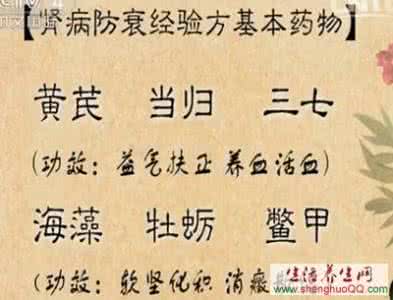 【肾病防衰经验方基本药物】
黄芪 当归 三七
(功效：益气扶正 养血活血)
海藻 牡蛎 鳖甲
(功效：软坚化积 消癥
生活养生网
www.shenghuoQQ.com